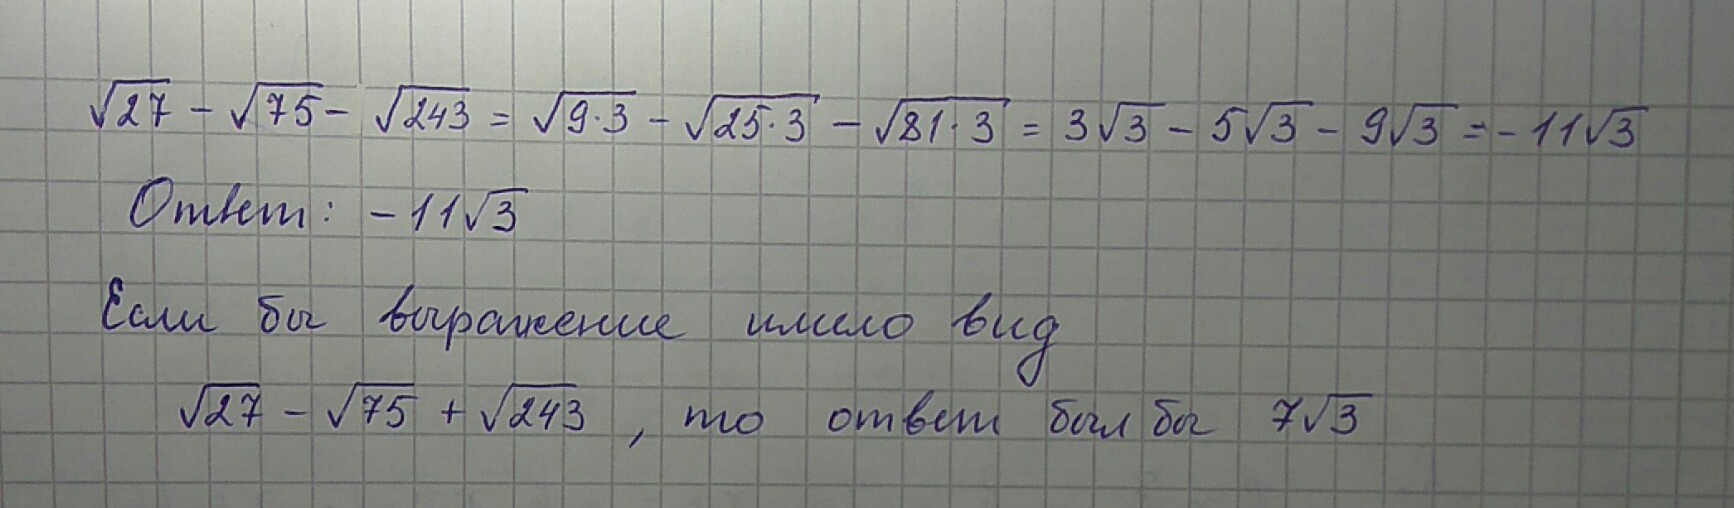 √27 - √75 - √243 = √9·3 - √25·3 - √81·3 = 3√3 - 5√3 - 9√3 = -11√3
Ответ: -11√3
Если бы выражение имело вид
√27 - √75 + √243, то ответ был бы 7√3